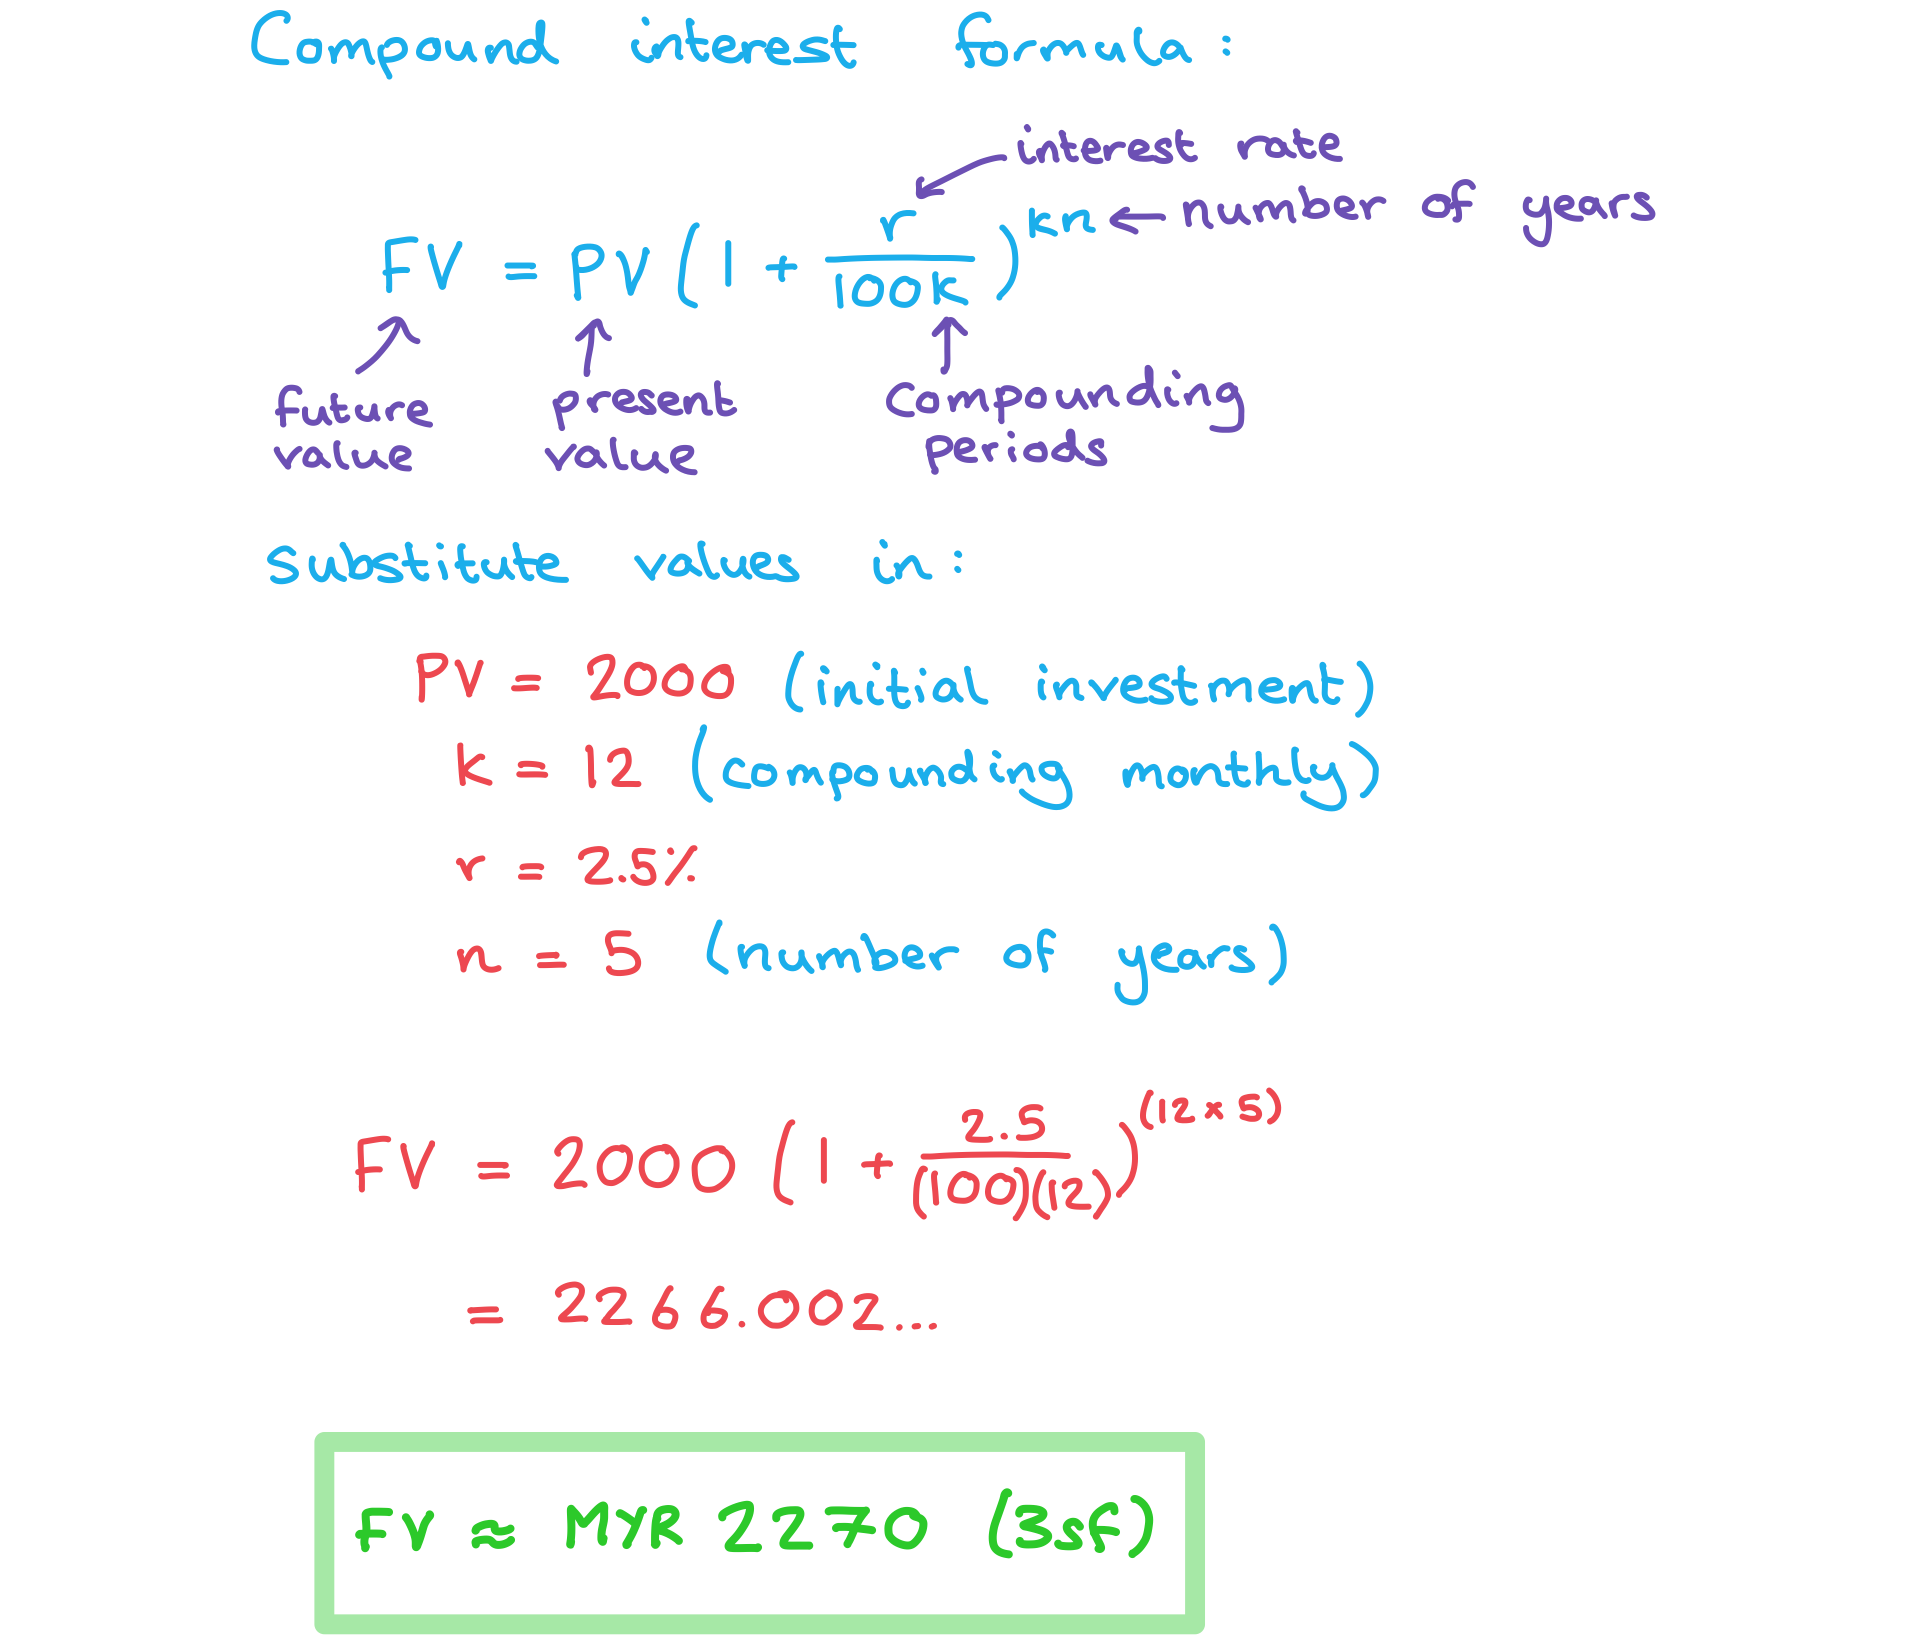 Compound interest formula:
interest rate
FV = PV(1 + r/100k)^kn ← number of years
future value
present value
compounding periods
substitute values in:
PV = 2000 (initial investment)
k = 12 (compounding monthly)
r = 2.5%
n = 5 (number of years)
FV = 2000 (1 + 2.5/(100)(12))^(12 × 5)
= 2266.002...
FV ≈ MYR 2270 (3sf)